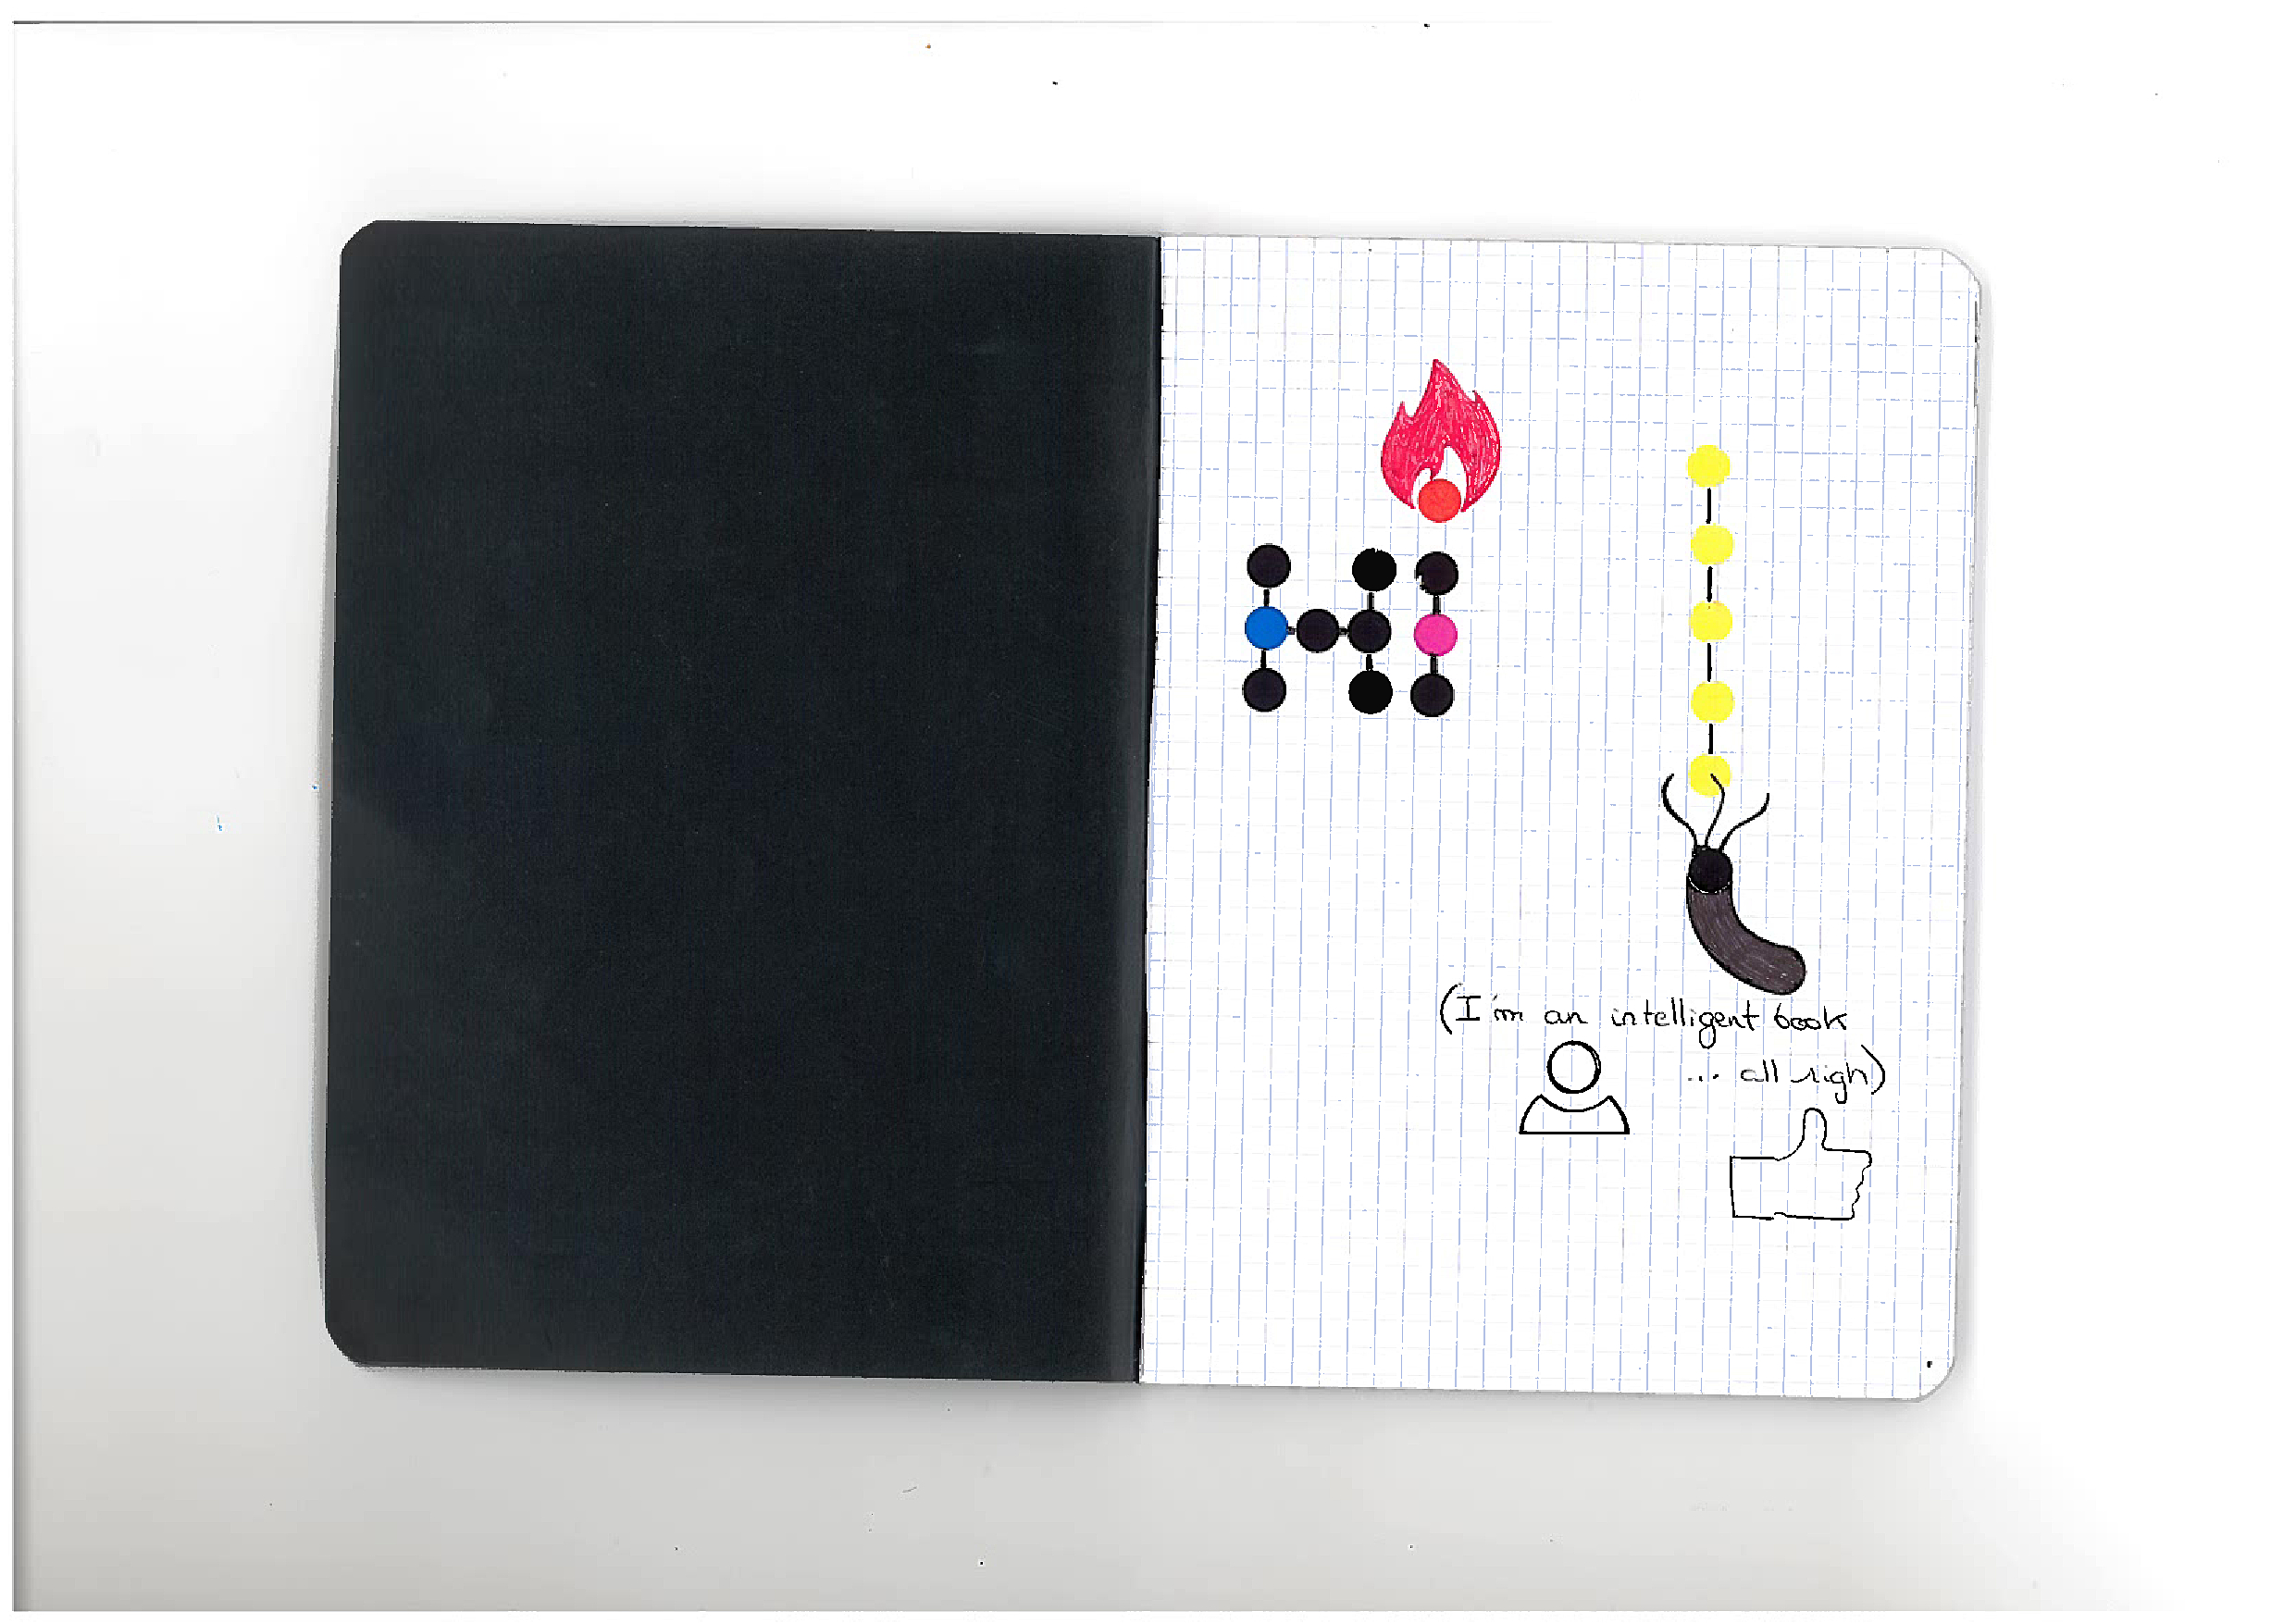 Hi
(I'm an intelligent book
... all righ)